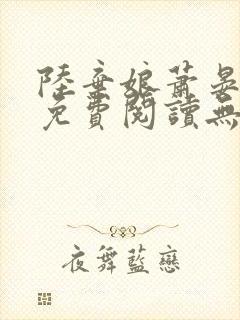 陸棄娘蕭晏
免費閱讀無
夜舞藍戀